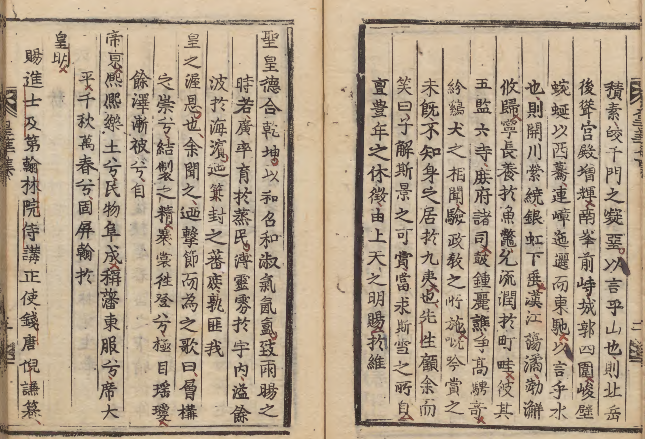 積素皎千門之變堊以言乎山也則北岳
後聳宮殿增輝南峯前峙城郭四圍峻壁
蜿蜒以西驀連嶂迤邐而東馳以言乎水
也則開川縈繞銀虹下垂漢江蕩潏渤澥
攸歸寧長養於魚鼈允流潤於町畦彼其
五監六寺庶府諸司鼓鍾麗譙爭高騁奇
紛鷄犬之相聞驗政敎之所施吟賞之
未旣不知身之居於九夷也先生顧余而
笑曰子解斯景之可賞當求斯雪之所自
亶豊年之休徵由上天之明賜於維
聖皇德合乾坤以和召和淑氣氤氳致雨暘之
時若廣卒育於蒸民溥靈雰於宇內溢餘
波於海濱迤築封之蕃庶孰匪我
皇之渥恩也余聞之廼擊節而為之歌曰層構
之崇兮結製之精褰裳徃登兮極目瑤瓊
餘澤漸被兮自
帝京熙熙樂土兮民物阜成稱藩東服兮席大
平千秋萬春兮固屏翰於
皇明
賜進士及第翰林院侍講正使錢唐倪謙纂